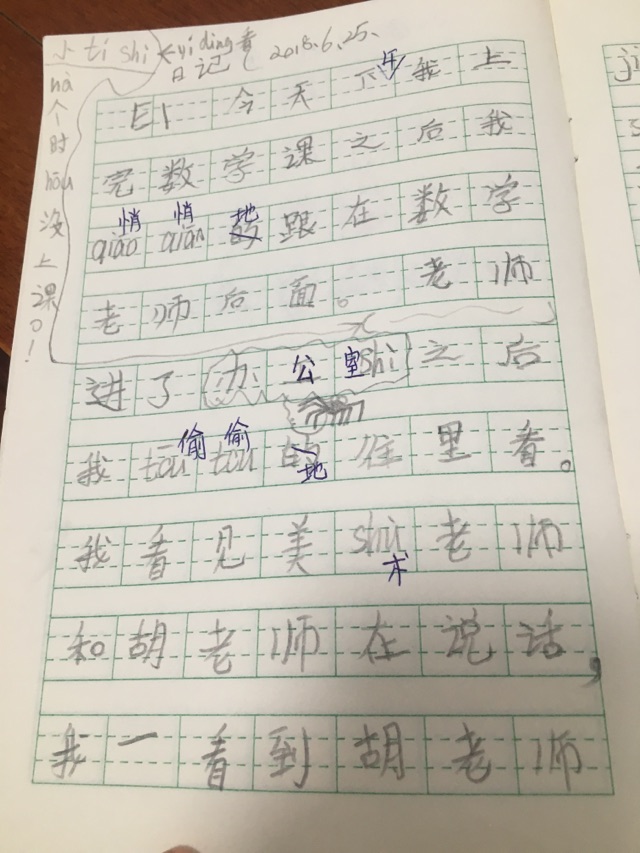 小tí shì yí dìng看
日记 2018.6.25.
nà个时hòu没上课。!
今天下午我上
完数学课之后我
qiāo悄 qiāo悄 地跟在数学
老师后面。老师
进了办公室shì之后
我tōu偷tōu偷的地往里看。
我看见美shù术老师
和胡老师在说话,
我一看到胡老师